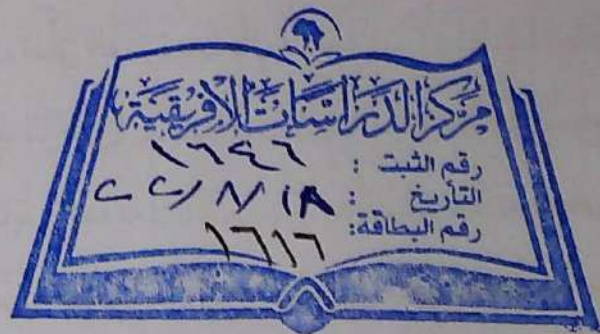 مركز الدراسات الافريقية
رقم الثبت : ١٦٤٦
التأريخ :
رقم البطاقة: ١٦١٦